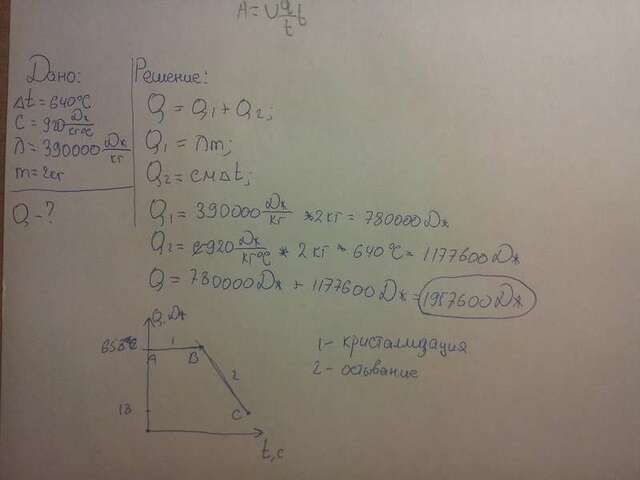 A = U q/t t
Дано:
Δt = 640°C
C = 920 Дж/кг°C
λ = 390000 Дж/кг
m = 2кг
Q - ?
Решение:
Q = Q₁ + Q₂;
Q₁ = λm;
Q₂ = cмΔt;
Q₁ = 390000 Дж/кг * 2 кг = 780000 Дж
Q₂ = 920 Дж/кг°C * 2 кг * 640 °C = 1177600 Дж
Q = 780000 Дж + 1177600 Дж = 1957600 Дж
Q, Дж
1
A
B
2
C
13
t, c
1 - кристализация
2 - остывание